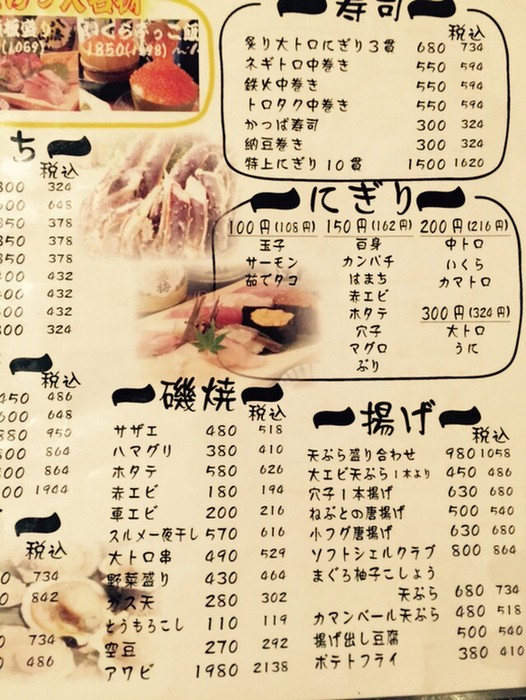 1850(1998)〜
寿司
税込
炙り大トロにぎり3貫 680 734
ネギトロ中巻き 550 594
鉄火中巻き 550 594
トロタク中巻き 550 594
かっぱ寿司 300 324
納豆巻き 300 324
特上にぎり10貫 1500 1620
にぎり
100円(108円) 150円(162円) 200円(216円)
玉子 白身 中トロ
サーモン カンパチ いくら
茹でタコ はまち カマトロ
赤エビ
ホタテ 300円(324円)
穴子 大トロ
マグロ うに
ぶり
ち
税込
300 324
600 648
350 378
350 378
350 378
400 432
400 432
300 324
税込
450 486
600 648
880 950
800 864
800 864
1944
税込
734
842
734
486
磯焼
税込
サザエ 480 518
ハマグリ 380 410
ホタテ 580 626
赤エビ 180 194
車エビ 200 216
スルメ一夜干し 570 616
大トロ串 490 529
野菜盛り 430 464
ガス天 280 302
とうもろこし 110 119
空豆 270 292
アワビ 1980 2138
揚げ
税込
天ぷら盛り合わせ 980 1058
大エビ天ぷら1本より 450 486
穴子1本揚げ 630 680
ねぶとの唐揚げ 500 540
小フグ唐揚げ 630 680
ソフトシェルクラブ 800 864
まぐろ柚子こしょう
天ぷら 680 734
カマンベール天ぷら 480 518
揚げ出し豆腐 500 540
ポテトフライ 380 410